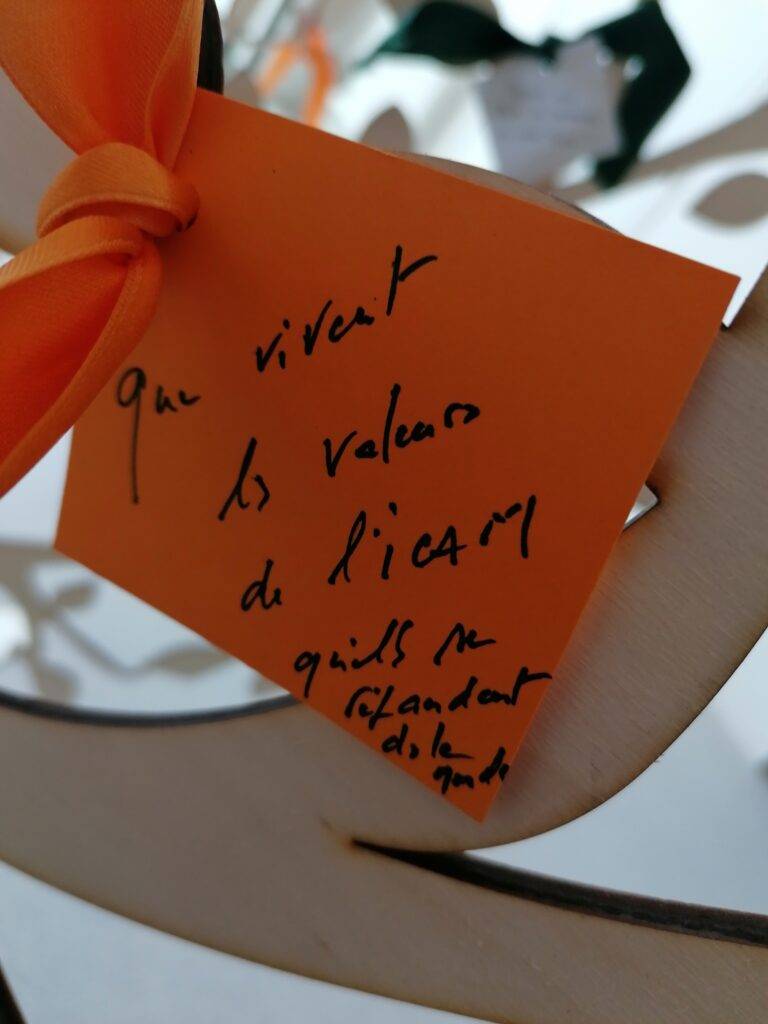 que vivent
les valeurs
de l'ICAM
qu'ils se
répandent
ds le
monde